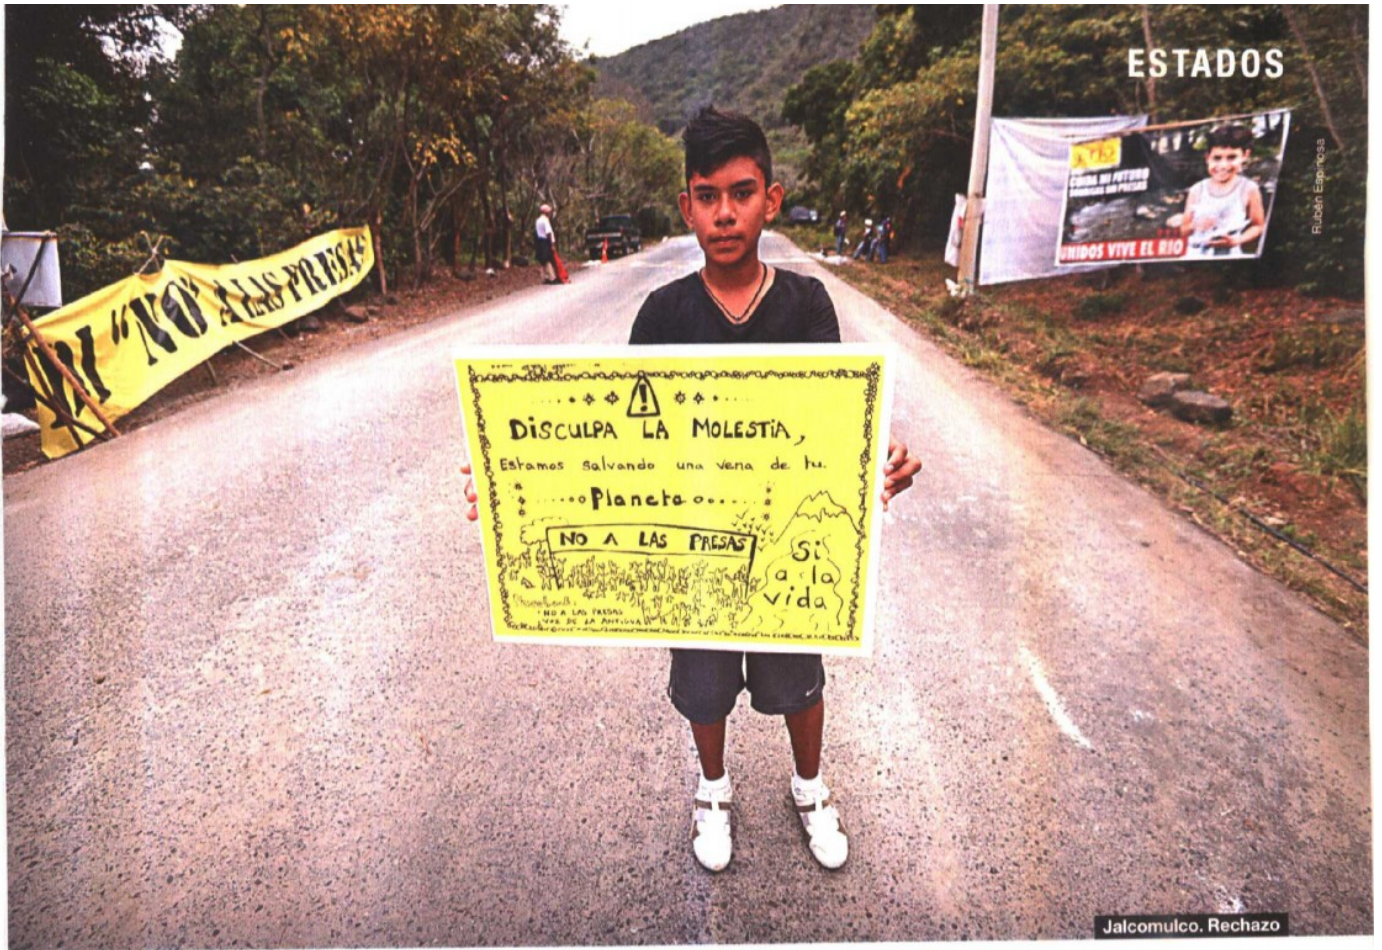 ESTADOS
Rubén Espinosa
"NO" A LAS PRESAS
CUIDA MI FUTURO
UNIDOS VIVE EL RIO
!
DISCULPA LA MOLESTIA,
Estamos salvando una vena de tu
Planeta
NO A LAS PRESAS
Si
a la
vida
NO A LAS PRESAS
VOZ DE LA ANTIGUA
Jalcomulco. Rechazo